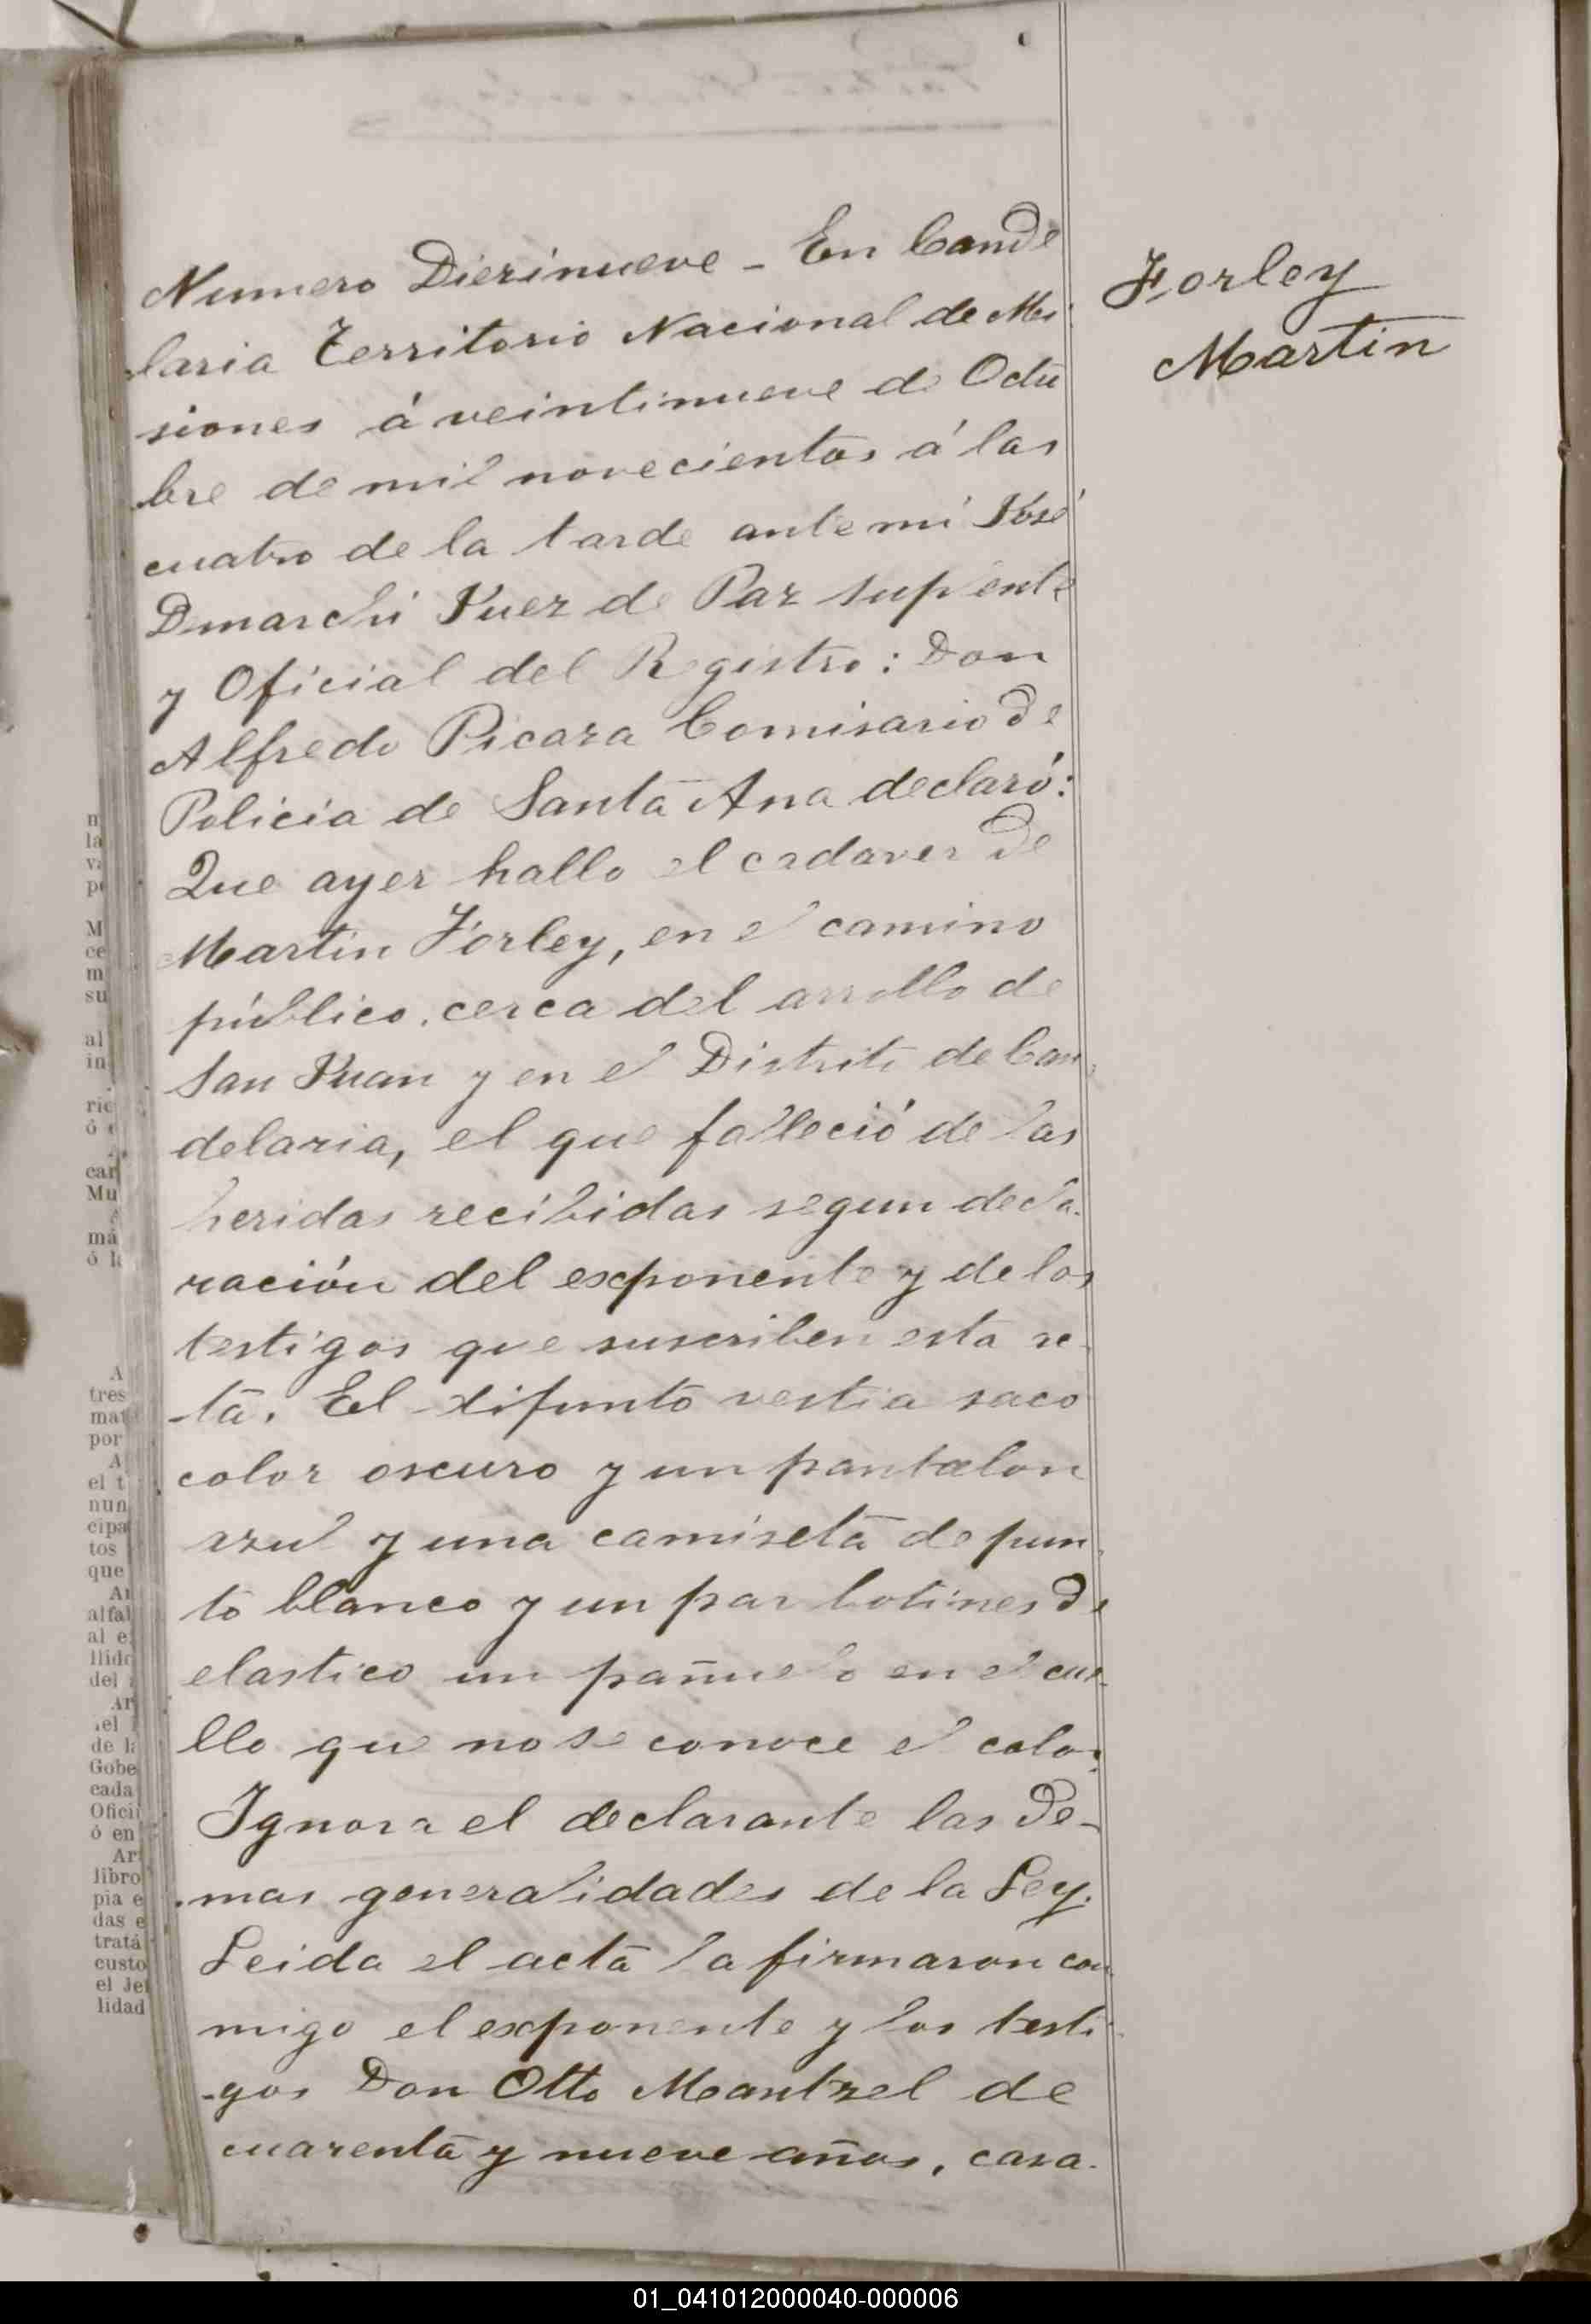 Numero Diezinueve - En Cande
laria Territorio Nacional de Mi
siones á veintinueve de Octu
bre de mil novecientos á las
cuatro de la tarde ante mi José
Dmarchi Juez de Paz suplente
y Oficial del Registro: Don
Alfredo Picaza Comisario de
Policia de Santa Ana declaró:
Que ayer hallo el cadaver de
Martin Forley, en el camino
público, cerca del arrollo de
San Juan y en el Distrito de Can
delaria, el que falleció de las
heridas recibidas segun decla-
ración del exponente y de los
testigos que suscriben esta ac-
ta. El difunto vestia saco
color oscuro y un pantalon
azul y una camiseta de pun-
to blanco y un par botines de
elastico un pañuelo en el cue-
llo que no se conoce el color.
Ignora el declarante las de-
mas generalidades de la Ley.
Leida el acta la firmaron con
migo el exponente y los testi
gos Don Otto Mantzel de
cuarenta y nueve años, casa-
Forley
Martin
n
la
va
po
M
ce
m
su
al
in
ric
ó
car
Mu
má
ó la
A
tres
mat
por
A
el t
nun
cipa
tos
que
Ar
alfal
al e
llido
del
Ar
el
de la
Gobe
cada
Ofici
ó en
Ar
libro
pia e
das e
tratá
custo
el Je
lidad
01_041012000040-000006